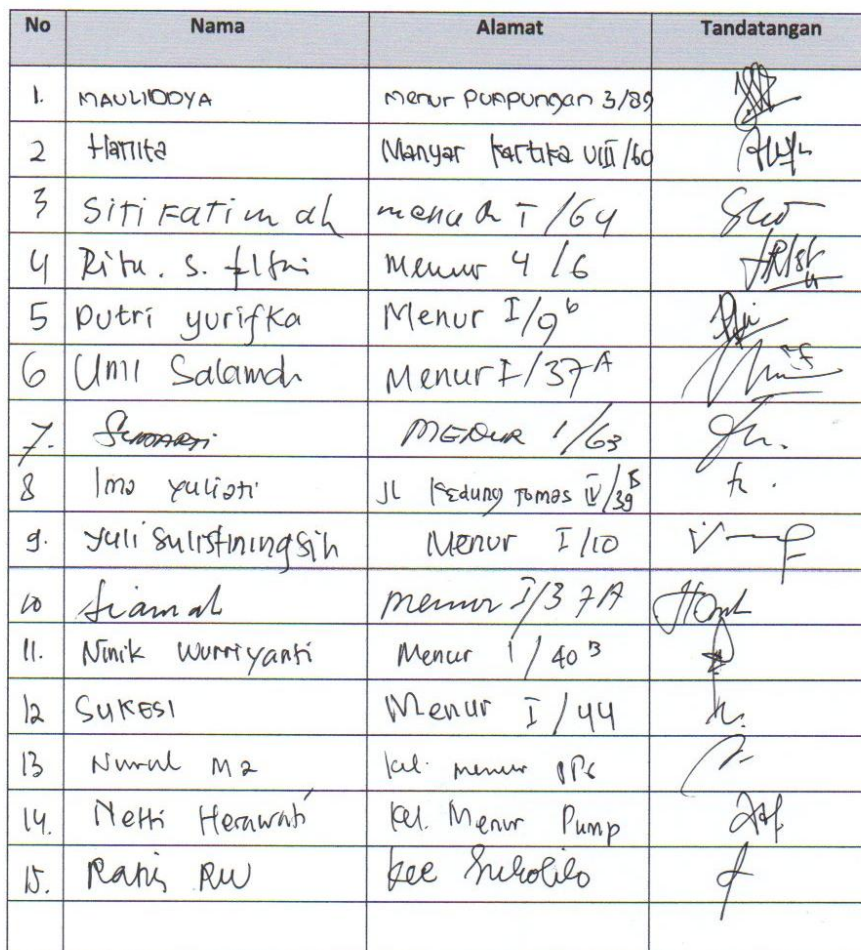 No Nama Alamat Tandatangan
1. MAULIDDYA Menur Pumpungan 3/89
2 Hanita Manyar Kartika VIII/60
3 Siti Fatimah menur I/64
4 Ritu. S. Menur 4/6
5 Putri yurifka Menur I/9b
6 Umi Salamah Menur I/37A
7. MENUR 1/63
8 Ima yuliati JL Kedung Tomas IV/39B
9. Yuli Sulistiningsih Menur I/10
10 menur I/37A
11. Ninik Wurriyanti Menur 1/40B
12 SUKESI Menur I/44
13 Nurul M2 kel. menur
14. Netti Herawati Kel. Menur Pump
15. Ratis RW Kec Sukolilo